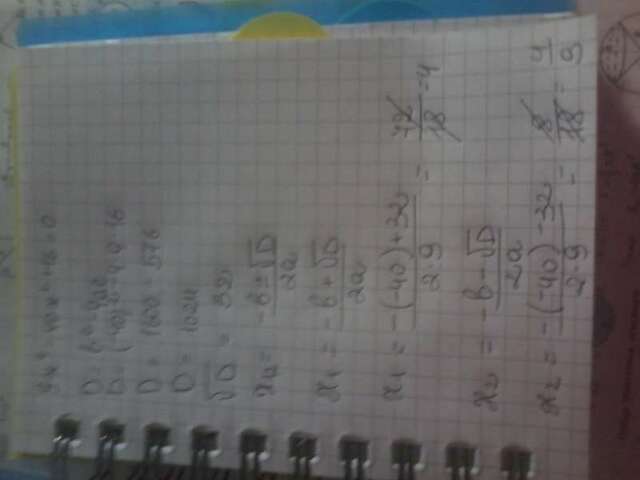 9x⁴-40x²+16=0
D = b²-4ac
D = (-40)²-4·9·16
D = 1600 - 576
D = 1024
√D = 32
x₁ = (-b+√D)/2a
x₁ = (-(-40)+32)/2·9 = 72/18 = 4
x₂ = (-b-√D)/2a
x₂ = (-(-40)-32)/2·9 = 8/18 = 4/9